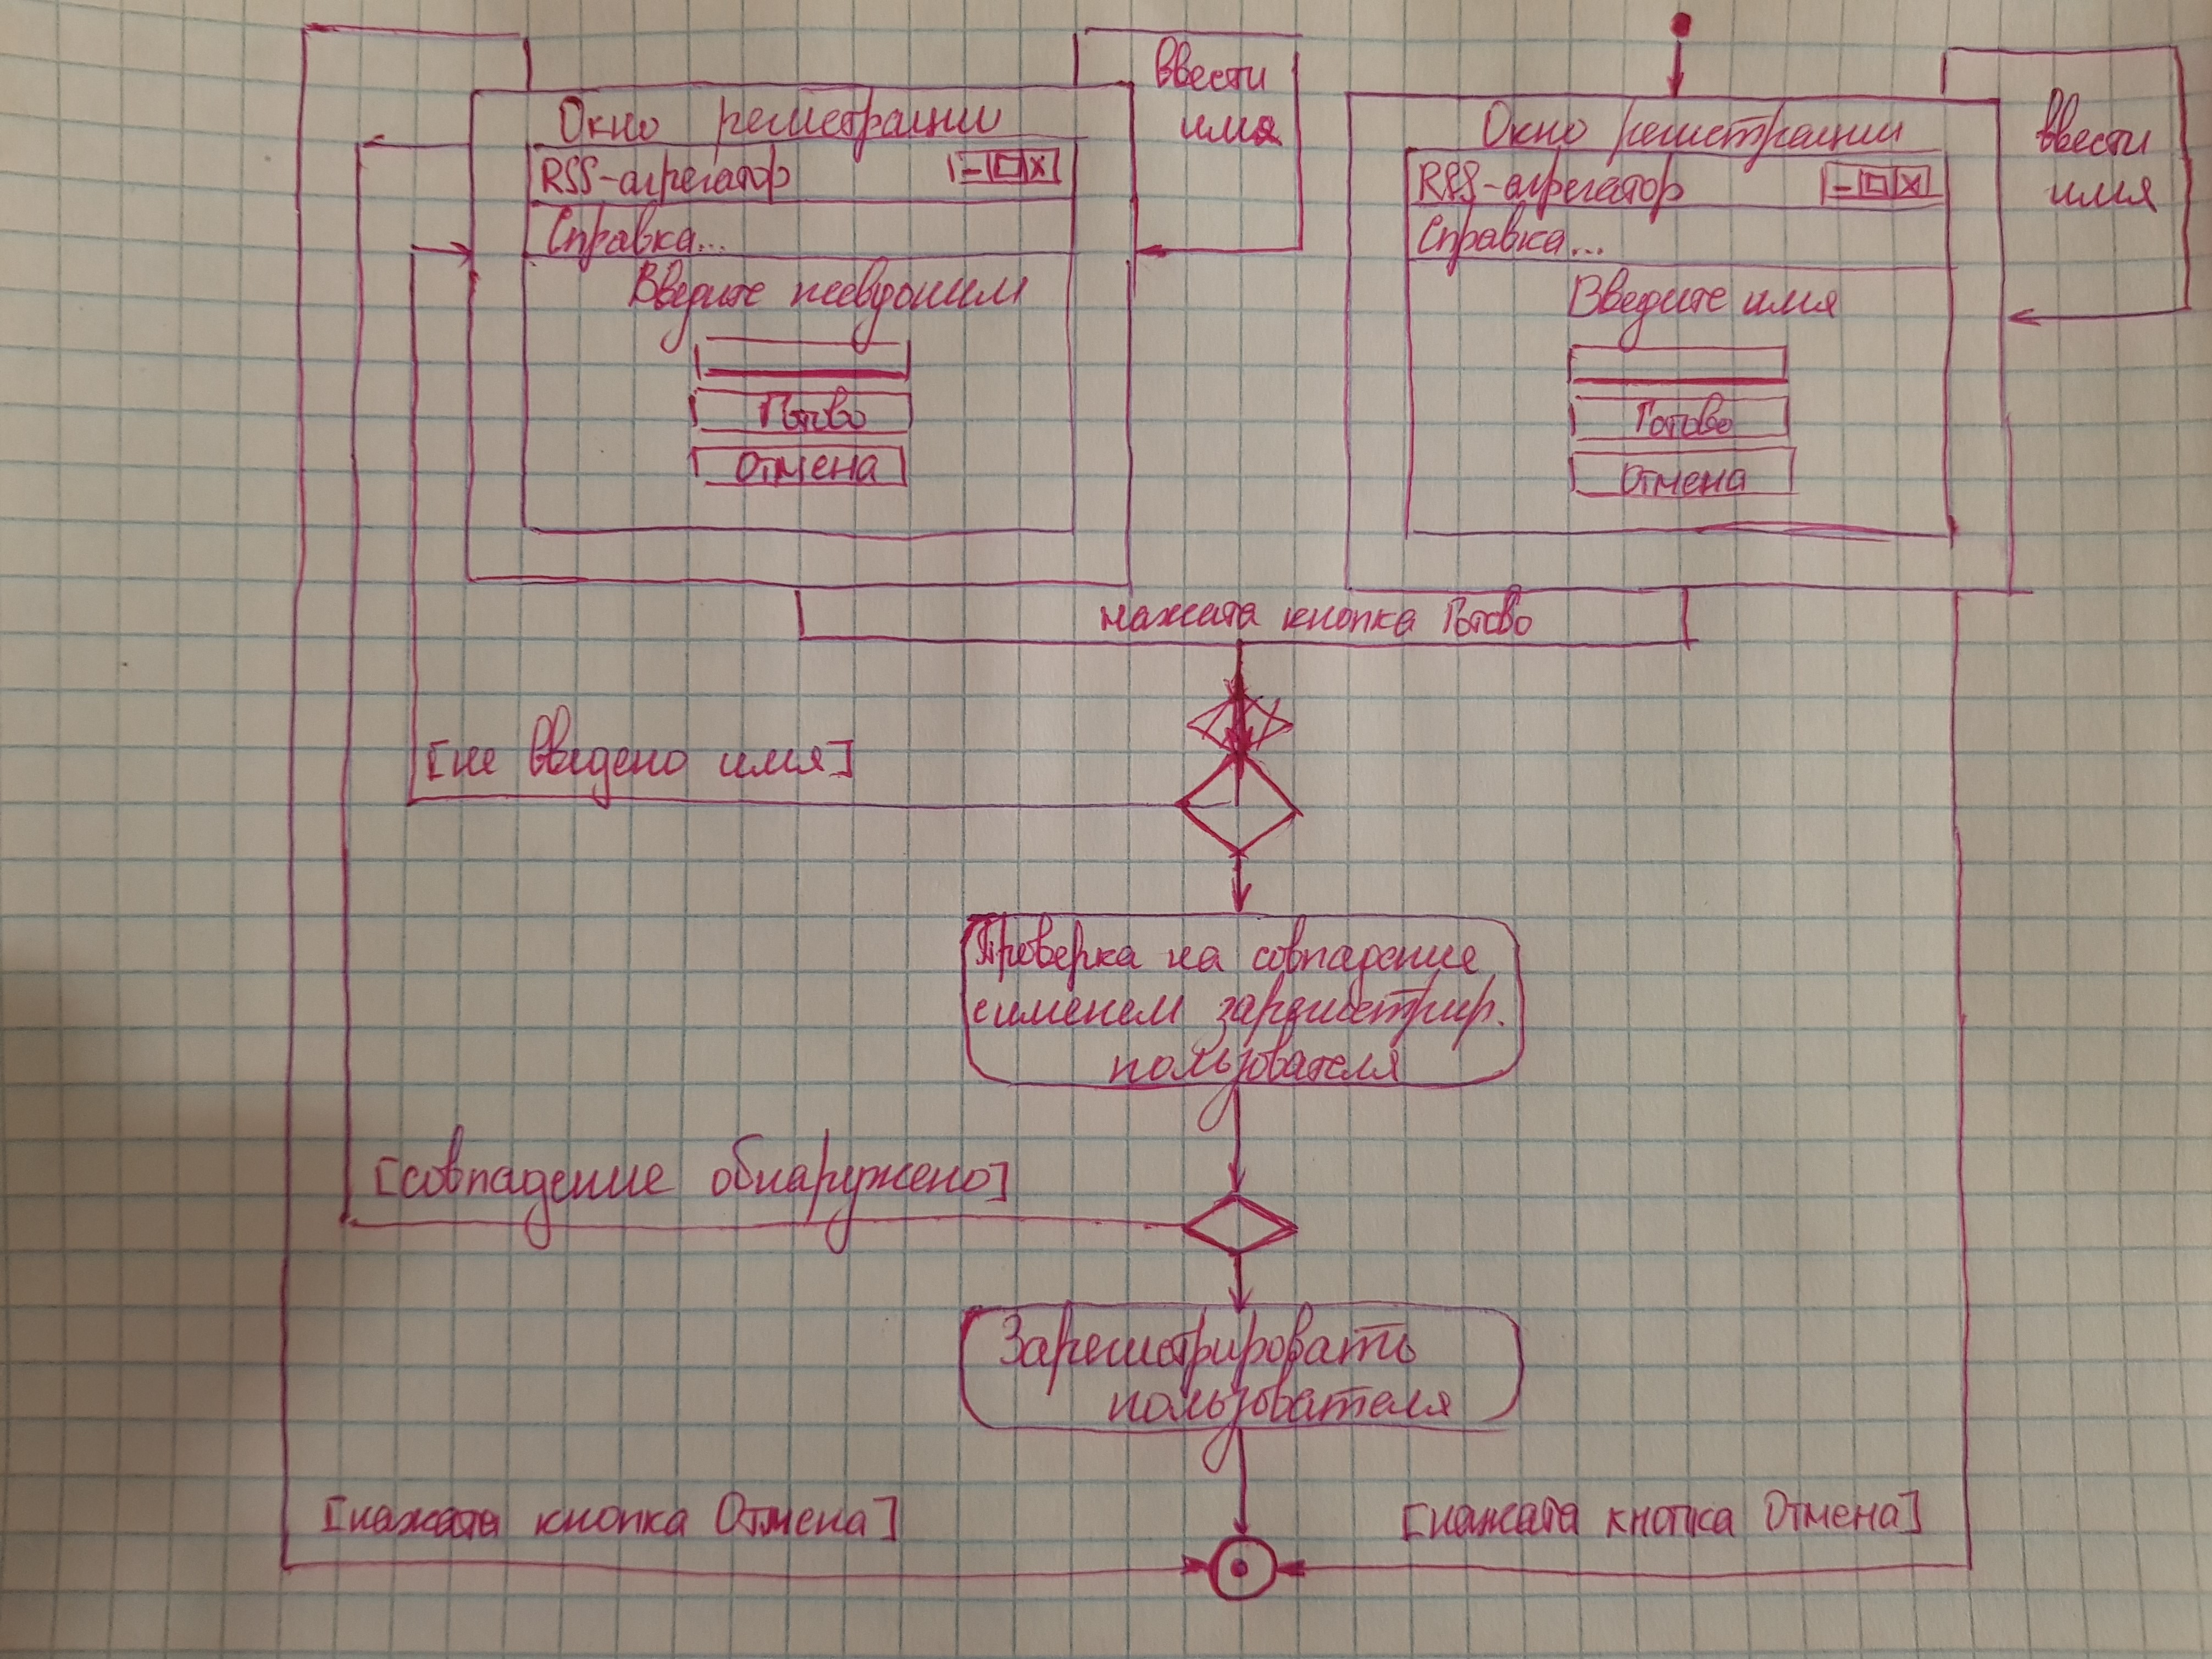 Окно регистрации
RSS-агрегатор
Справка...
Введите псевдоним
Готово
Отмена
Ввести
имя
Окно регистрации
RSS-агрегатор
Справка...
Введите имя
Готово
Отмена
Ввести
имя
нажата кнопка Готово
[не введено имя]
Проверка на совпадение
с именем зарегистрир.
пользователя
[совпадение обнаружено]
Зарегистрировать
пользователя
[нажата кнопка Отмена]
[нажата кнопка Отмена]